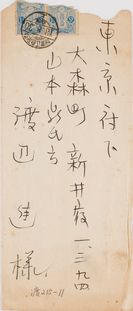 東京府下
大森町新井宿一、三九四
山本氏方
渡辺達様
渡215-11